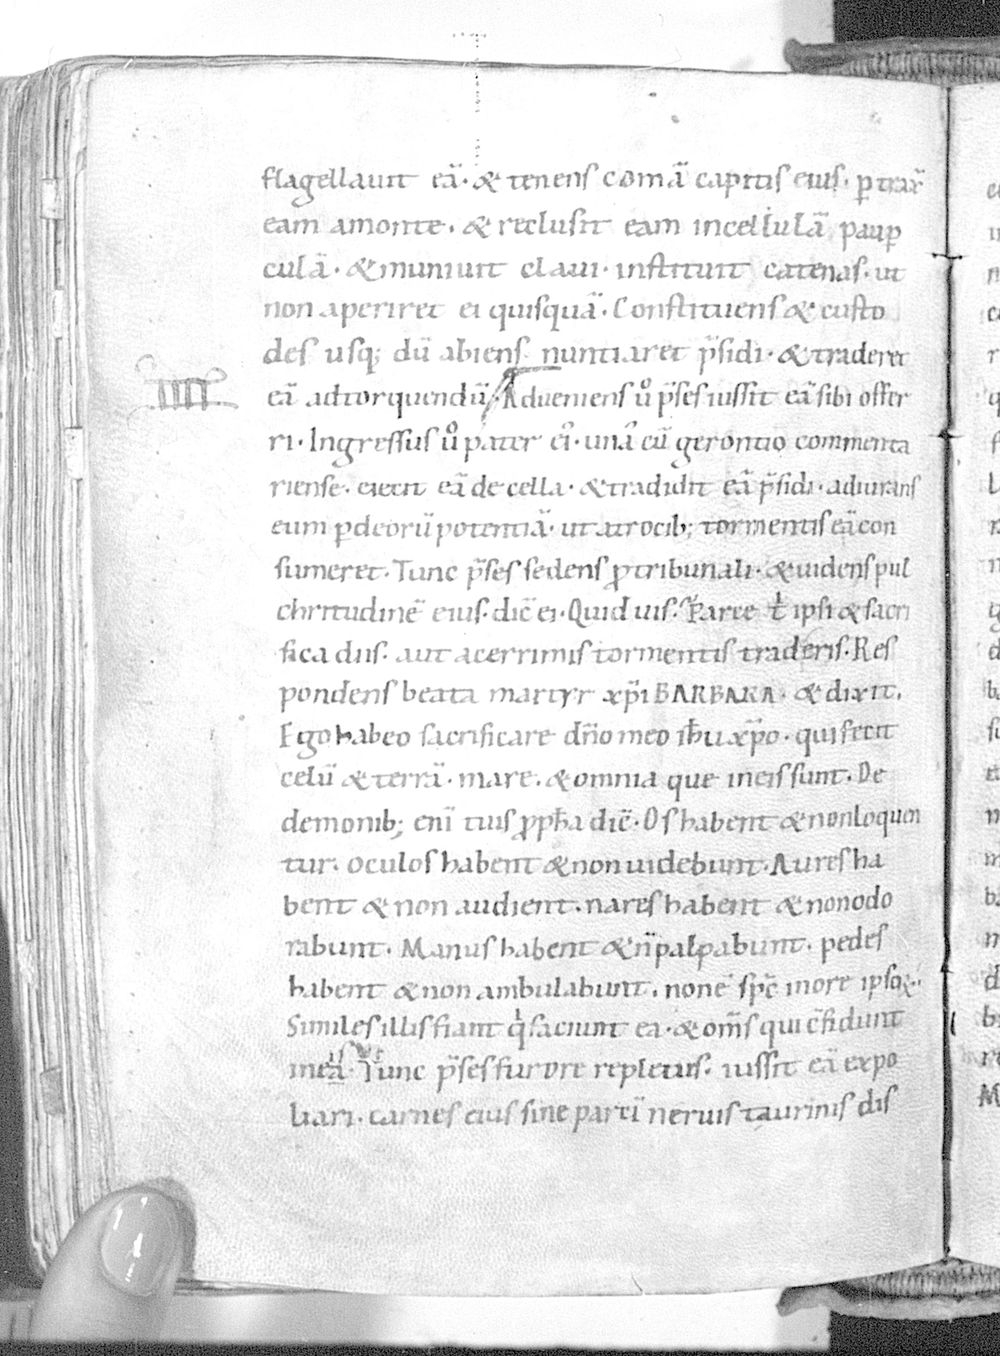 flagellauit eā· & tenens comā capitis eius· ꝑtrax̄
eam amonte· & reclusit eam incellulā paup̱
culā· & muniuit claui· instituit catenas· ut
non aperiret ei quisquā· Constituens & custo
des usq; dū abiens nuntiaret p̄sidi· & traderet
IIII
eā adtorquendū· Adueniens ů p̄ses iussit eā sibi offer
ri· Ingressus ů pater ei᷒· una᷒ cū gerontio commenta
riense· eiecit eā de cella· & tradidit eā p̄sidi· adiurans
eum ꝑ deorū potentiā· ut atrocib; tormentis eā con
sumeret· Tunc p̄ses sedens ꝓtribunali· & uidens pul
chritudinē eius· dic̄ ei· Quid uis· Parce t̄ ipsi & sacri
fica diis· aut acerrimis tormentis traderis· Res
pondens beata martyr xp̄i BARBARA· & dixit·
Ego habeo sacrificare dn̄o meo ih̄u xp̄o· qui fecit
celū & terrā· mare· & omnia que ineis sunt· De
demonib; eni᷒ tuis ꝓph̄a dic̄· Os habent & nonloquen
tur· oculos habent & non uidebunt· Aures ha
bent & non audient· nares habent & non odo
rabunt· Manus habent & n̄ palpabunt· pedes
habent & non ambulabunt· non ē sp̄c inore ipsoꝝ·
Similes illis fiant q̇ faciunt ea· & om̄s qui c̄fidunt
ineis· Tunc p̄ses furore repletus· iussit eā expo
liari· carnes eius sine parti᷒ neruis taurinis dis